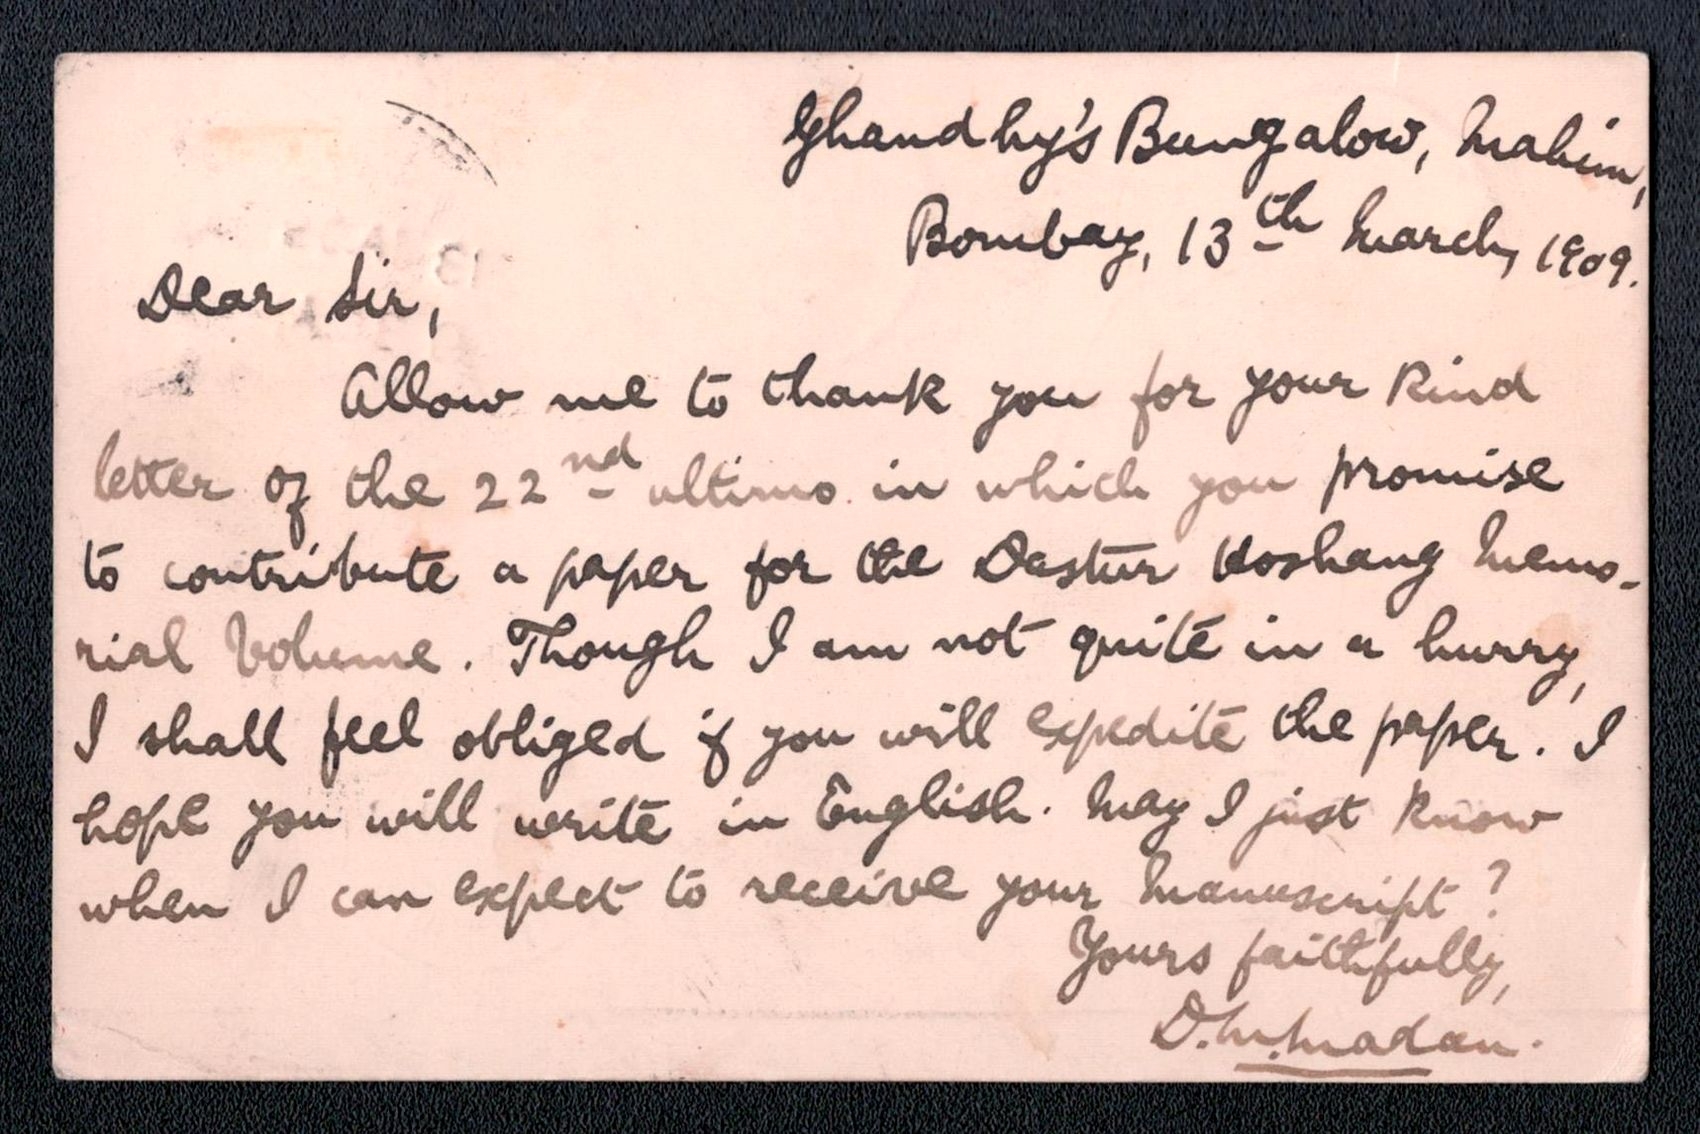 Ghandhy's Bungalow, Mahim,
Bombay, 13th March, 1909.
Dear Sir,
Allow me to thank you for your kind
letter of the 22nd ultimo in which you promise
to contribute a paper for the Dastur Hoshang Memo-
rial Volume. Though I am not quite in a hurry,
I shall feel obliged if you will expedite the paper. I
hope you will write in English. May I just know
when I can expect to receive your manuscript?
Yours faithfully,
D.M.Madan.